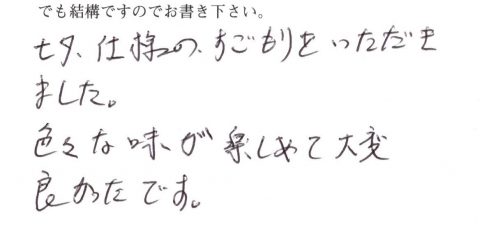 でも結構ですのでお書き下さい。
七夕、仕様の、すごもりをいただき
ました。
色々な味が楽しめて大変
良かったです。